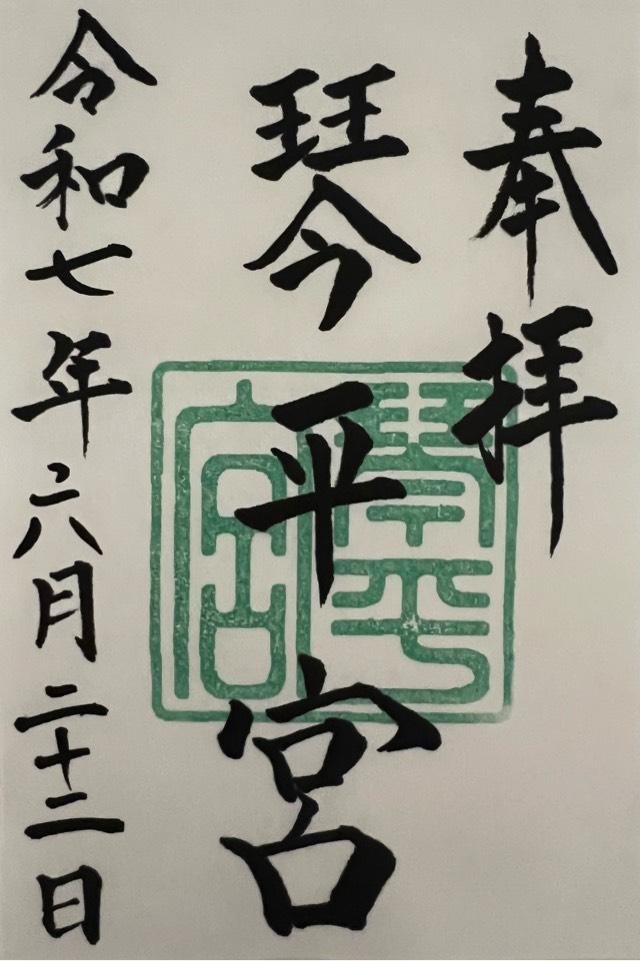 奉拝
琴平宮
琴平宮
令和七年六月二十二日